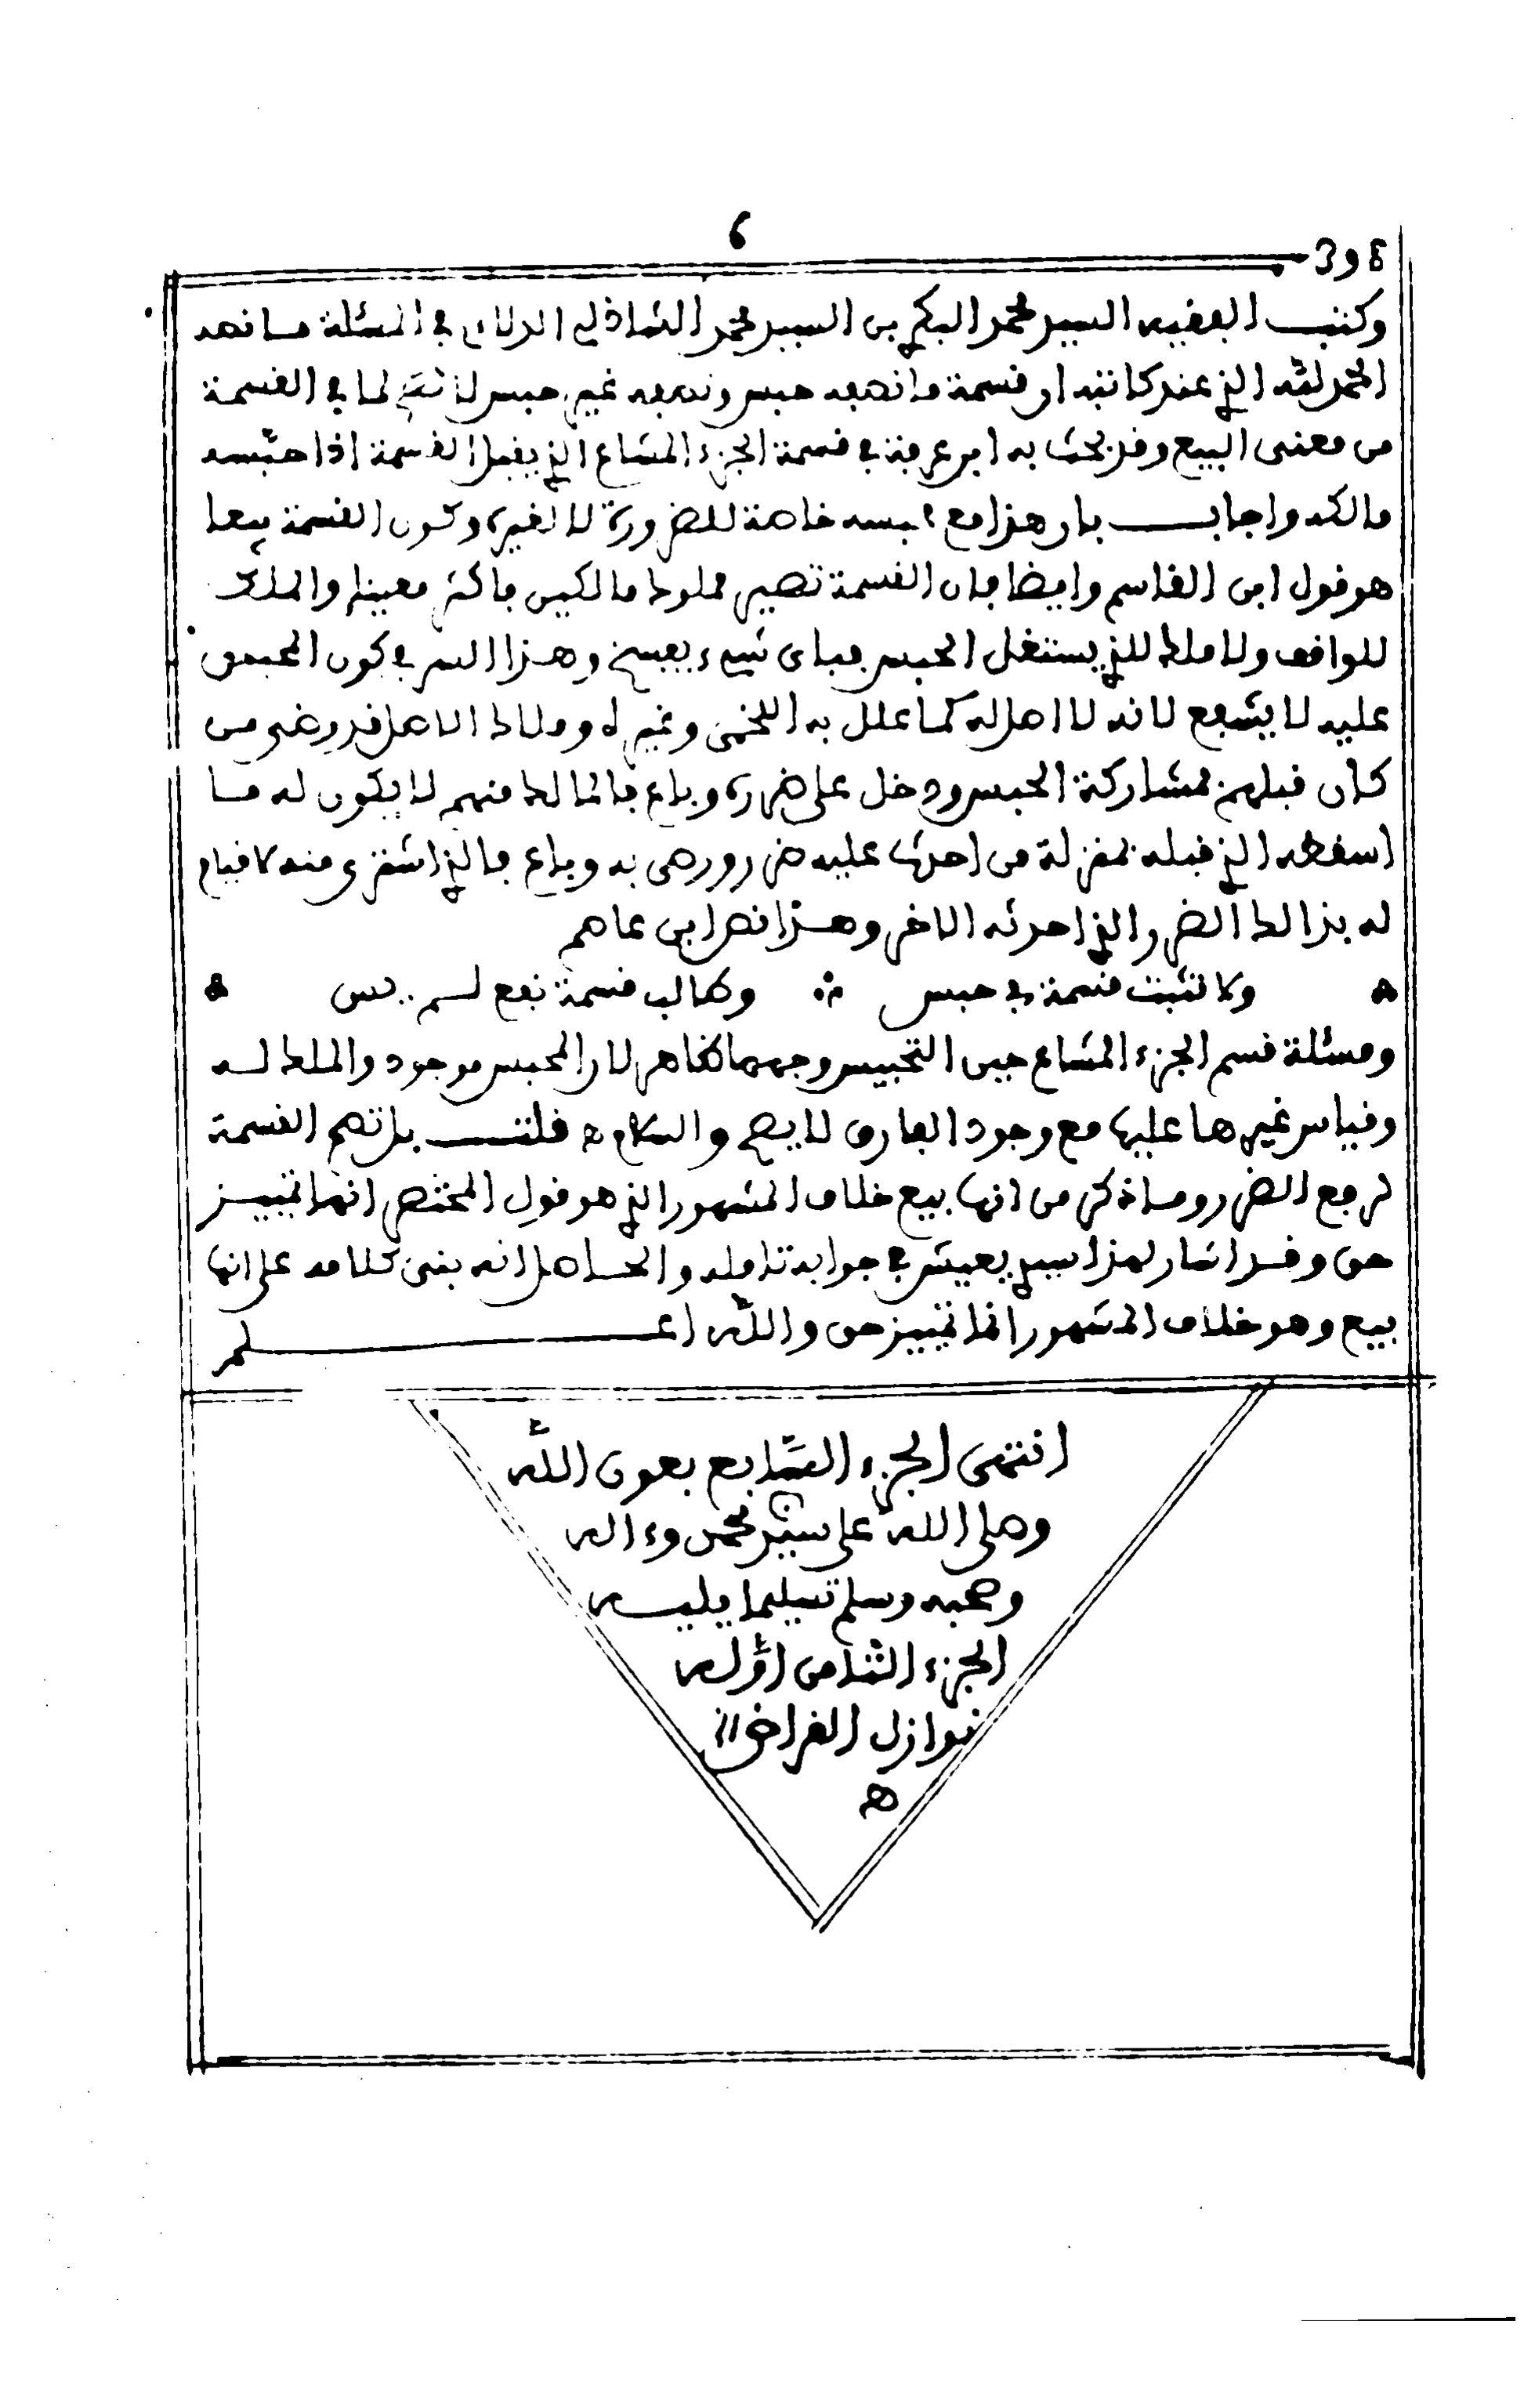 6
398
وكتب الفقيه السيد محمد البكري بن السيد محمد الشاذلي الدلائي في المسئلة ما نصه
الحمد لله الذي عند كاتبه ان قسمة ما نصفه حبس ونصفه غير حبس لا تصح لما في القسمة
من معنى البيع وقد بحث به ابن عرفة في قسمة الجزء المشاع الذي يقبل القسمة اذا حبسه
مالكه واجاب بان هذا مع محبسه خاصة للضرورة لا لغيره وكون القسمة بيعا
هو قول ابن القاسم وايضا فان القسمة تصير مملوك مالكين فاكثر معينا والملك
للواقف ولا ملك للذي يستغل الحبس فباي شيء يفسخ وهذا السر في كون المحبس
عليه لا يشفع لانه لا اصل له كما علل به اللخمي وغيره وملاك الاصل قد رضي من
كان قبلهم بمشاركة الحبس ودخل على ضرره وباع فالمالك منهم لا يكون له ما
اسقطه الذي قبله بمنزلة من احدث عليه ضرر ورضي به وباع فالذي اشترى منه لا قيام
له بذالك الضرر الذي احدثه الاخر وهذا نص ابن عاصم
ولا تثبت قسمة في حبس ∴ وطالب قسمة نفع لم
ومسئلة قسم الجزء المشاع حين التحبيس وجهها ظاهر لان المحبس موجود والملك له
وقياس غيرها عليها مع وجود الفارق لا يصح والسلام ه قلت بل تصح القسمة
لرفع الضرر وما ذكر من انها بيع خلاف المشهور الذي هو قول المختصر انها تمييز
حق وقد اشار لهذا سيدي يعيش في جوابه تأمله والحاصل انه بنى كلامه على انها
بيع وهو خلاف المشهور انها تمييز حق والله اعلم
انتهى الجزء السابع بعون الله
وصلى الله على سيدنا محمد وءاله
وصحبه وسلم تسليما يليه
الجزء الثامن اوله
نوازل القراض
ه